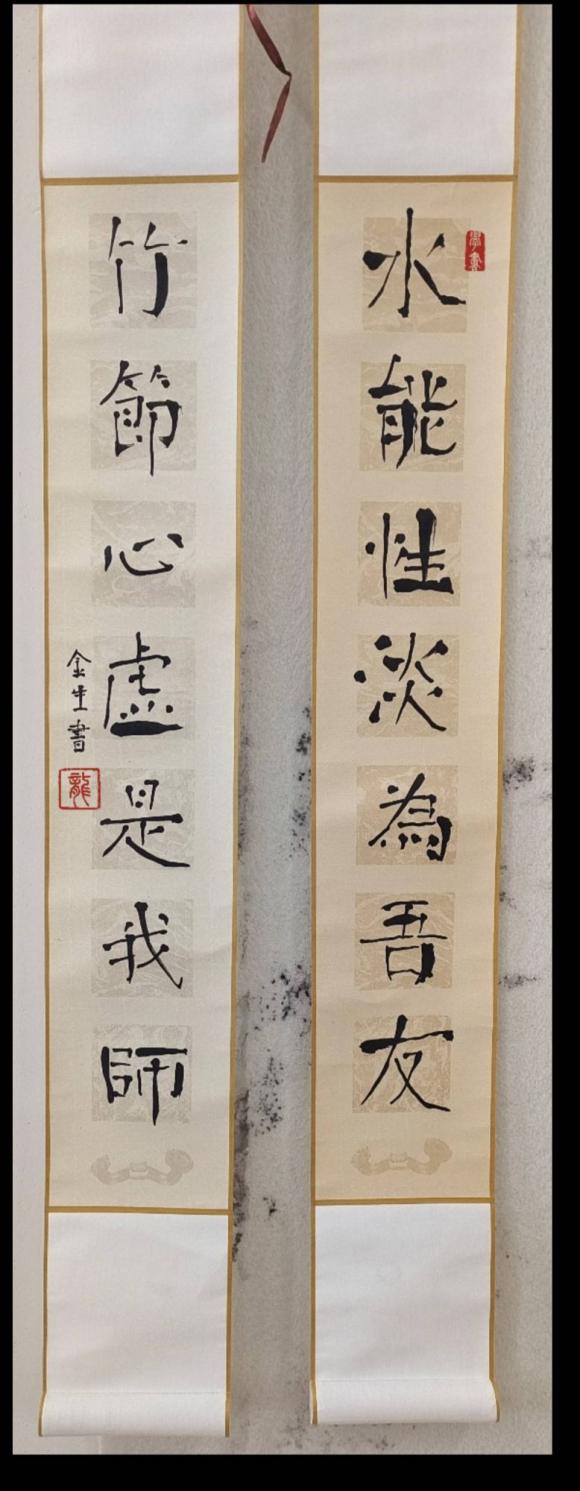 水能性淡為吾友
竹節心虛是我師
金生書
龍